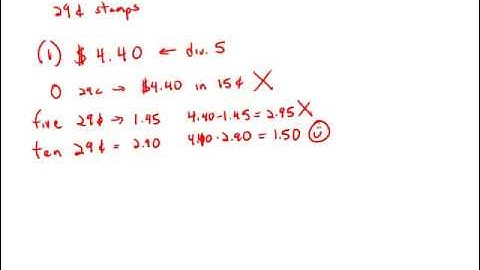 29¢ stamps
(1) $4.40 ← div. 5
0 29¢ → $4.40 in 15¢ X
five 29¢ → 1.45 4.40-1.45 = 2.95 X
ten 29¢ = 2.90 4.40-2.90 = 1.50 ☺